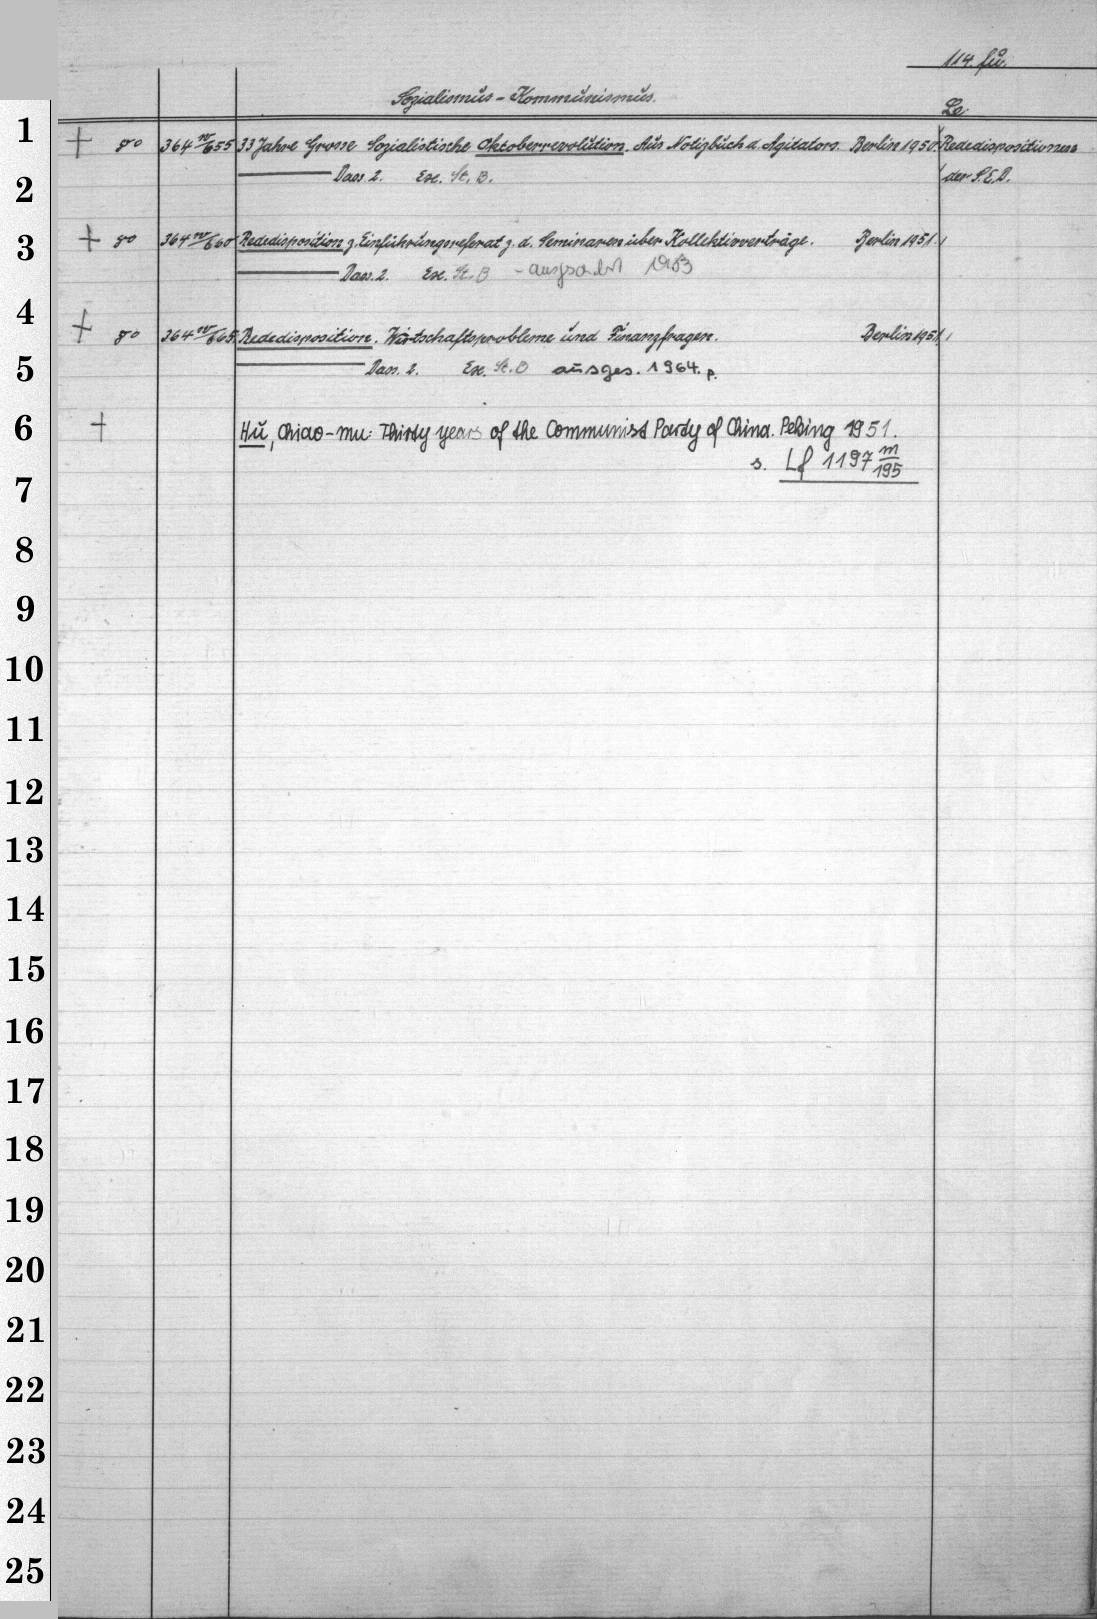 114. fü.
Sozialismus - Kommunismus.
Le
1
+ 8° 364 n/655 33 Jahre Grosse Sozialistische Oktoberrevolution. Aus Notizbuch d. Agitators. Berlin 1950. Rededispositionen
Dass. 2. Ex. St. B. der S.E.D.
2
3
+ 8° 364 n/660 Rededisposition z. Einführungsreferat z. d. Seminaren über Kollektivverträge. Berlin 1951.
Dass. 2. Ex. St. B
4
+ 8° 364 n/665 Rededisposition. Wirtschaftsprobleme und Finanzfragen. Berlin 1951.
5
Dass. 2. Ex. St. B ausges. 1964. p.
6
+ Hu, Chiao-mu: Thirty years of the Communist Party of China. Peking 1951.
s. Lf 1197 m/195
7
8
9
10
11
12
13
14
15
16
17
18
19
20
21
22
23
24
25